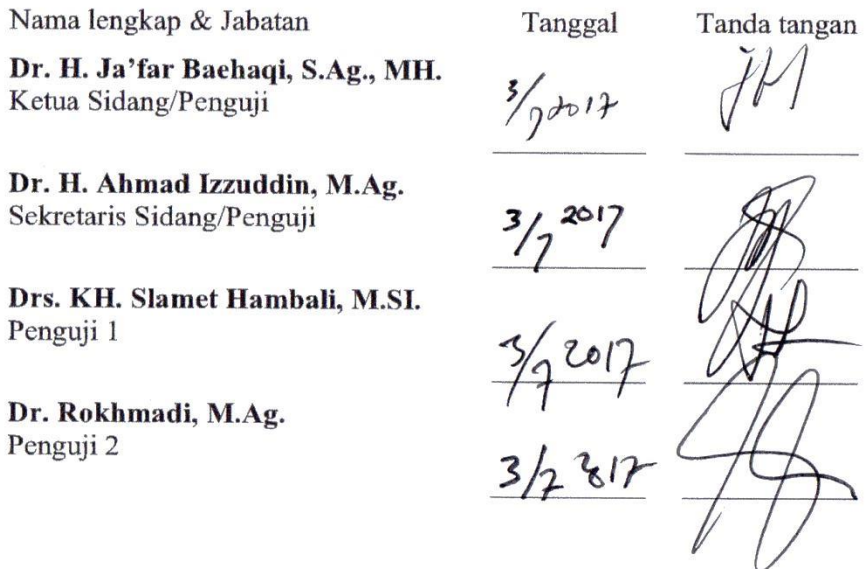 Nama lengkap & Jabatan Tanggal Tanda tangan
Dr. H. Ja'far Baehaqi, S.Ag., MH.
Ketua Sidang/Penguji 3/7 2017
Dr. H. Ahmad Izzuddin, M.Ag.
Sekretaris Sidang/Penguji 3/7 2017
Drs. KH. Slamet Hambali, M.SI.
Penguji 1 3/7 2017
Dr. Rokhmadi, M.Ag.
Penguji 2 3/7